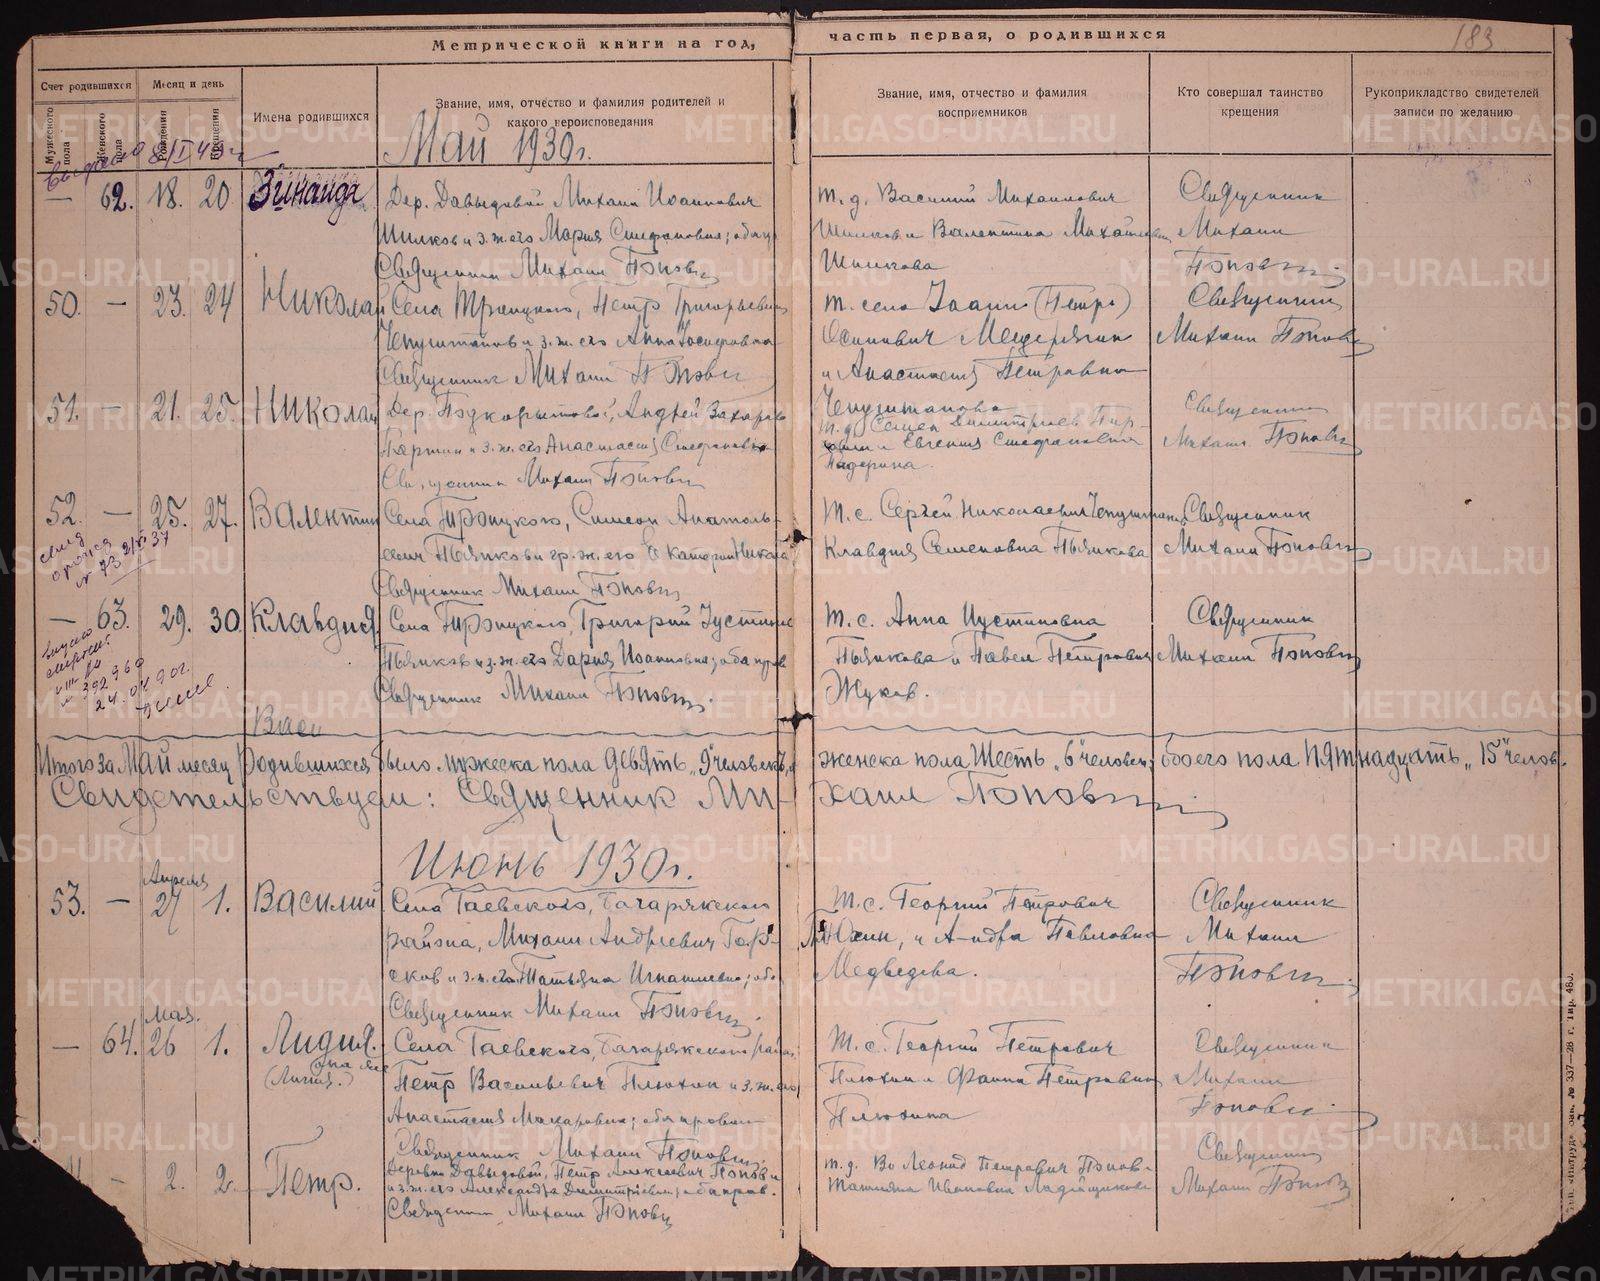 Метрической книги на год,
часть первая, о родившихся
183
Счет родившихся
Месяц и день
Мужеского пола
Женского пола
Рождения
Крещения
Имена родившихся
Звание, имя, отчество и фамилия родителей и
какого вероисповедания
Звание, имя, отчество и фамилия
восприемников
Кто совершал таинство
крещения
Рукоприкладство свидетелей
записи по желанию
Май 1930 г.
— 62. 18. 20 Зинаида
Дер. Давыдовой Михаил Иоаннович
Шилков и з. ж. его Мария Стефановна; оба пр
Священник Михаил Попов
т. д. Василий Михайлович
Шилков и Валентина Михайловна
Шилкова
Священник
Михаил
Попов
50. — 23. 24 Николай
Села Троицкого, Петр Григорьевич
Чепуштанов и з. ж. его Анна Иосифовна
Священник Михаил Попов
т. села Иоанн (Петр)
Осипович Мещерягин
и Анастасия Петровна
Чепуштанова
Священник
Михаил Попов
51. — 21. 25. Николай
Дер. Подкорытовой, Андрей Захаров
и з. ж. его Анастасия Стефановна
Священник Михаил Попов
т. д. Семен Димитриев
и Евгения Стефановна
Священник
Михаил Попов
52. — 25. 27. Валентин
Села Троицкого, Симеон Анатоль-
евич Пьянков и гр. ж. его Екатерин Никола
Священник Михаил Попов
т. с. Сергей Николаевич Чепуштанов
Клавдия Семеновна Пьянкова
Священник
Михаил Попов
— 63. 29. 30 Клавдия.
Села Троицкого, Григорий Иустинов
Пьянков и з. ж. его Дария Иоанновна; оба прав
Священник Михаил Попов.
т. с. Анна Иустиновна
Пьянкова и Павел Петрович
Жуков.
Священник
Михаил Попов
№ 392969
24.04.90г.
Васи
Итого за Май месяц родившихся было мужеска пола девять „9" человек, и женска пола шесть „6" человек; обоего пола пятнадцать „15" челов.
Свидетельствуем: Священник Михаил Попов
Июнь 1930 г.
Апреля
53. — 27 1. Василий
Села Гаевского, Багарякского
района, Михаил Андреевич
и з. ж. его Татьяна Игнатиевна; оба
Священник Михаил Попов.
т. с. Георгий Петрович
Павловна
Медведева.
Священник
Михаил
Попов
Мая.
— 64. 26 1. Лидия.
Села Гаевского, Багарякского район
Петр Васильевич Плюхин и з. ж. его
Анастасия Макаровна; оба правос
Священник Михаил Попов
т. с. Георгий Петрович
Плюхин и Фаина Петровна
Плюхина
Священник
Михаил
Попов
— 2. 2. Петр.
Деревни Давыдовой, Петр Алексеевич Попов и
и з. ж. его Александра Димитриевна; оба прав.
Священник Михаил Попов
т. д. Леонид Петрович Попов
Татьяна Ивановна Ладейщикова
Священник
Михаил Попов
METRIKI.GASO-URAL.RU